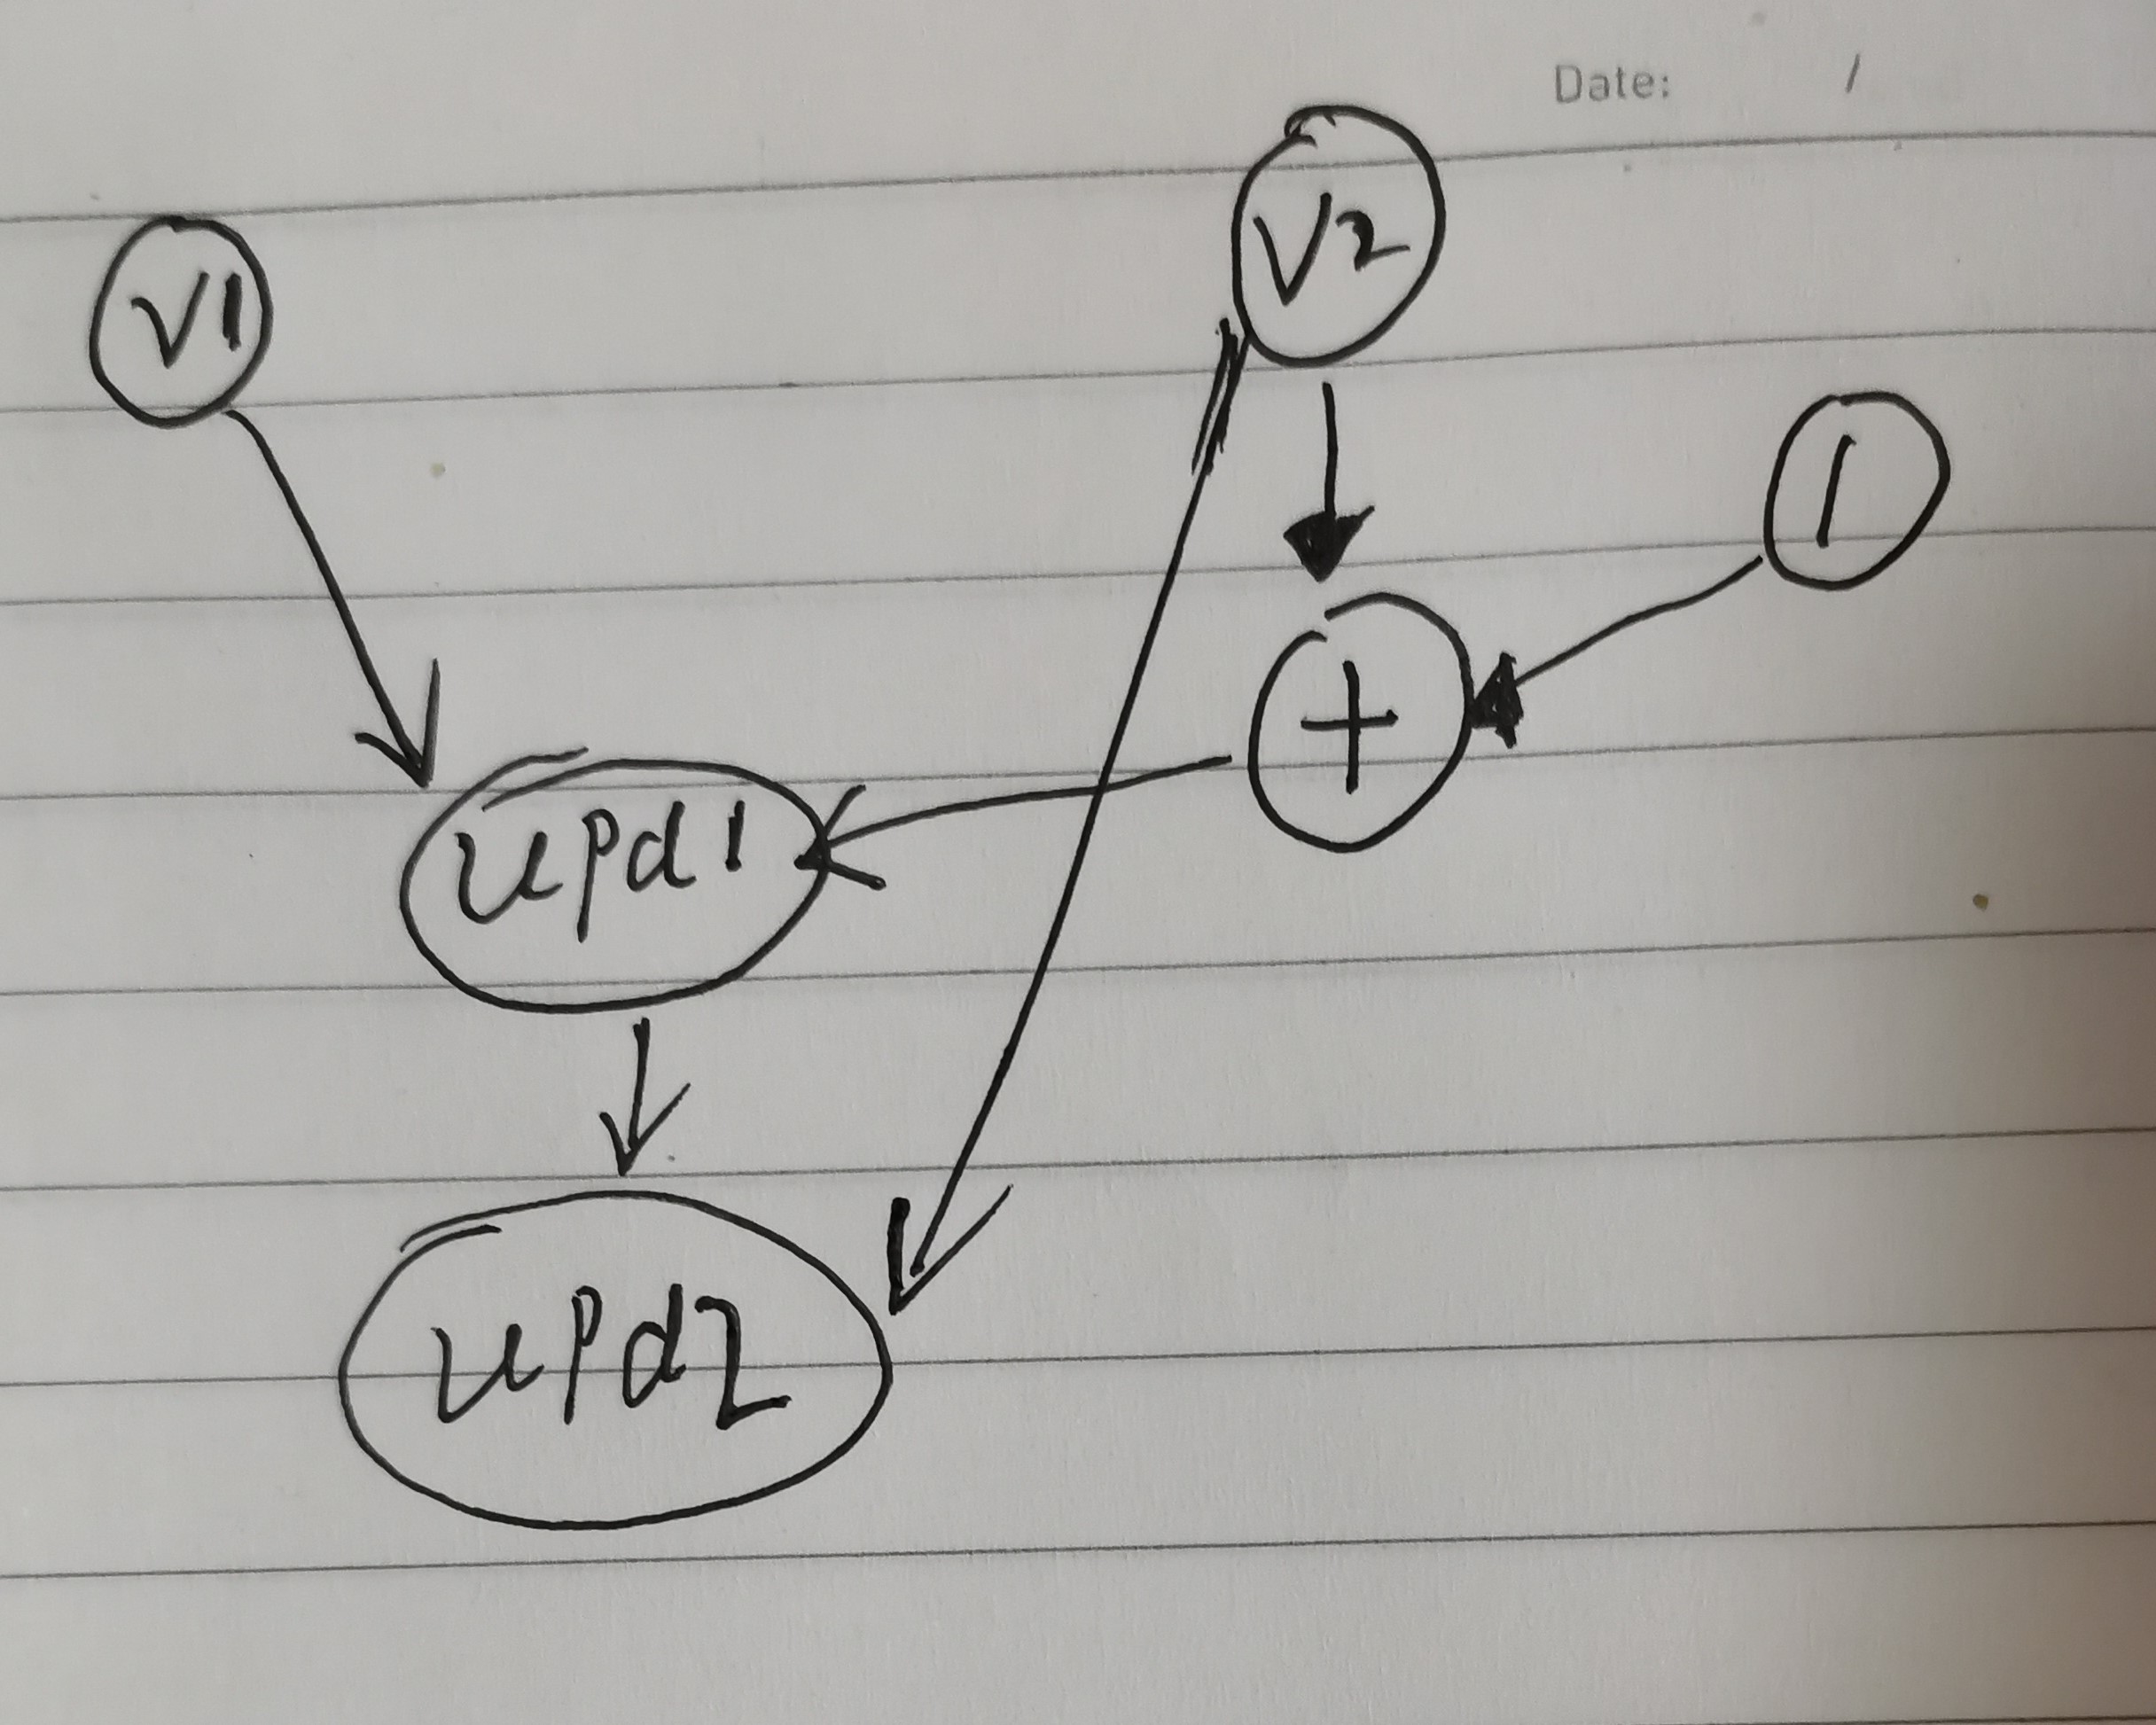 Date: /
V2
V1
1
+
upd1
upd2